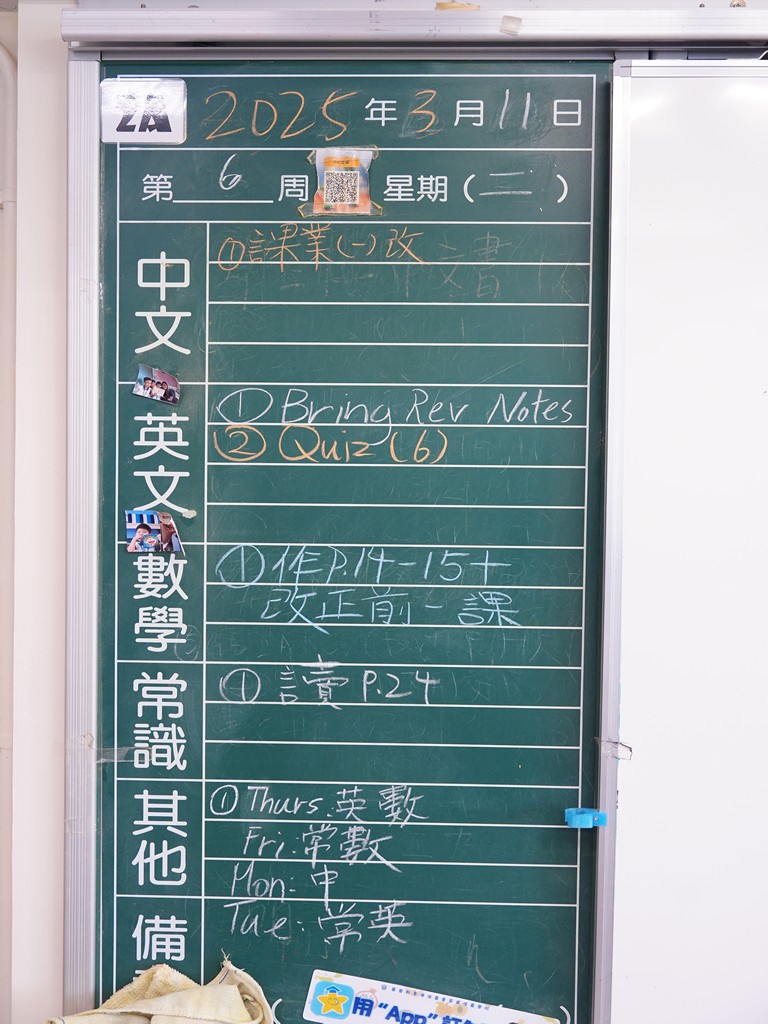 2A
2025年3月11日
第6周 星期(二)
中文
①課業(一)改
英文
①Bring Rev Notes
②Quiz(6)
數學
①作P.14-15+
改正前一課
常識
①讀P.24
其他
①Thurs:英數
Fri:常數
Mon:中
Tue:常英
備
用"App"訂